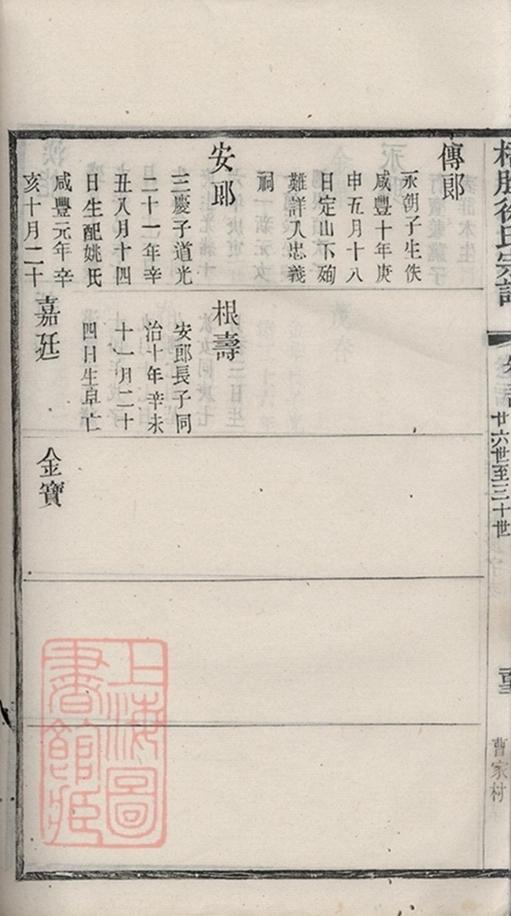 徐氏宗譜
廿六世至三十世
曹家村
傳郎
永朝子生佚
咸豐十年庚
申五月十八
日定山下殉
難詳入忠義
祠
安郎
三慶子道光
二十一年辛
丑八月十四
日生配姚氏
咸豐元年辛
亥十月二十
根壽
安郎長子同
治十年辛未
十一月二十
四日生早亡
嘉廷
金寶
上海圖
書館藏